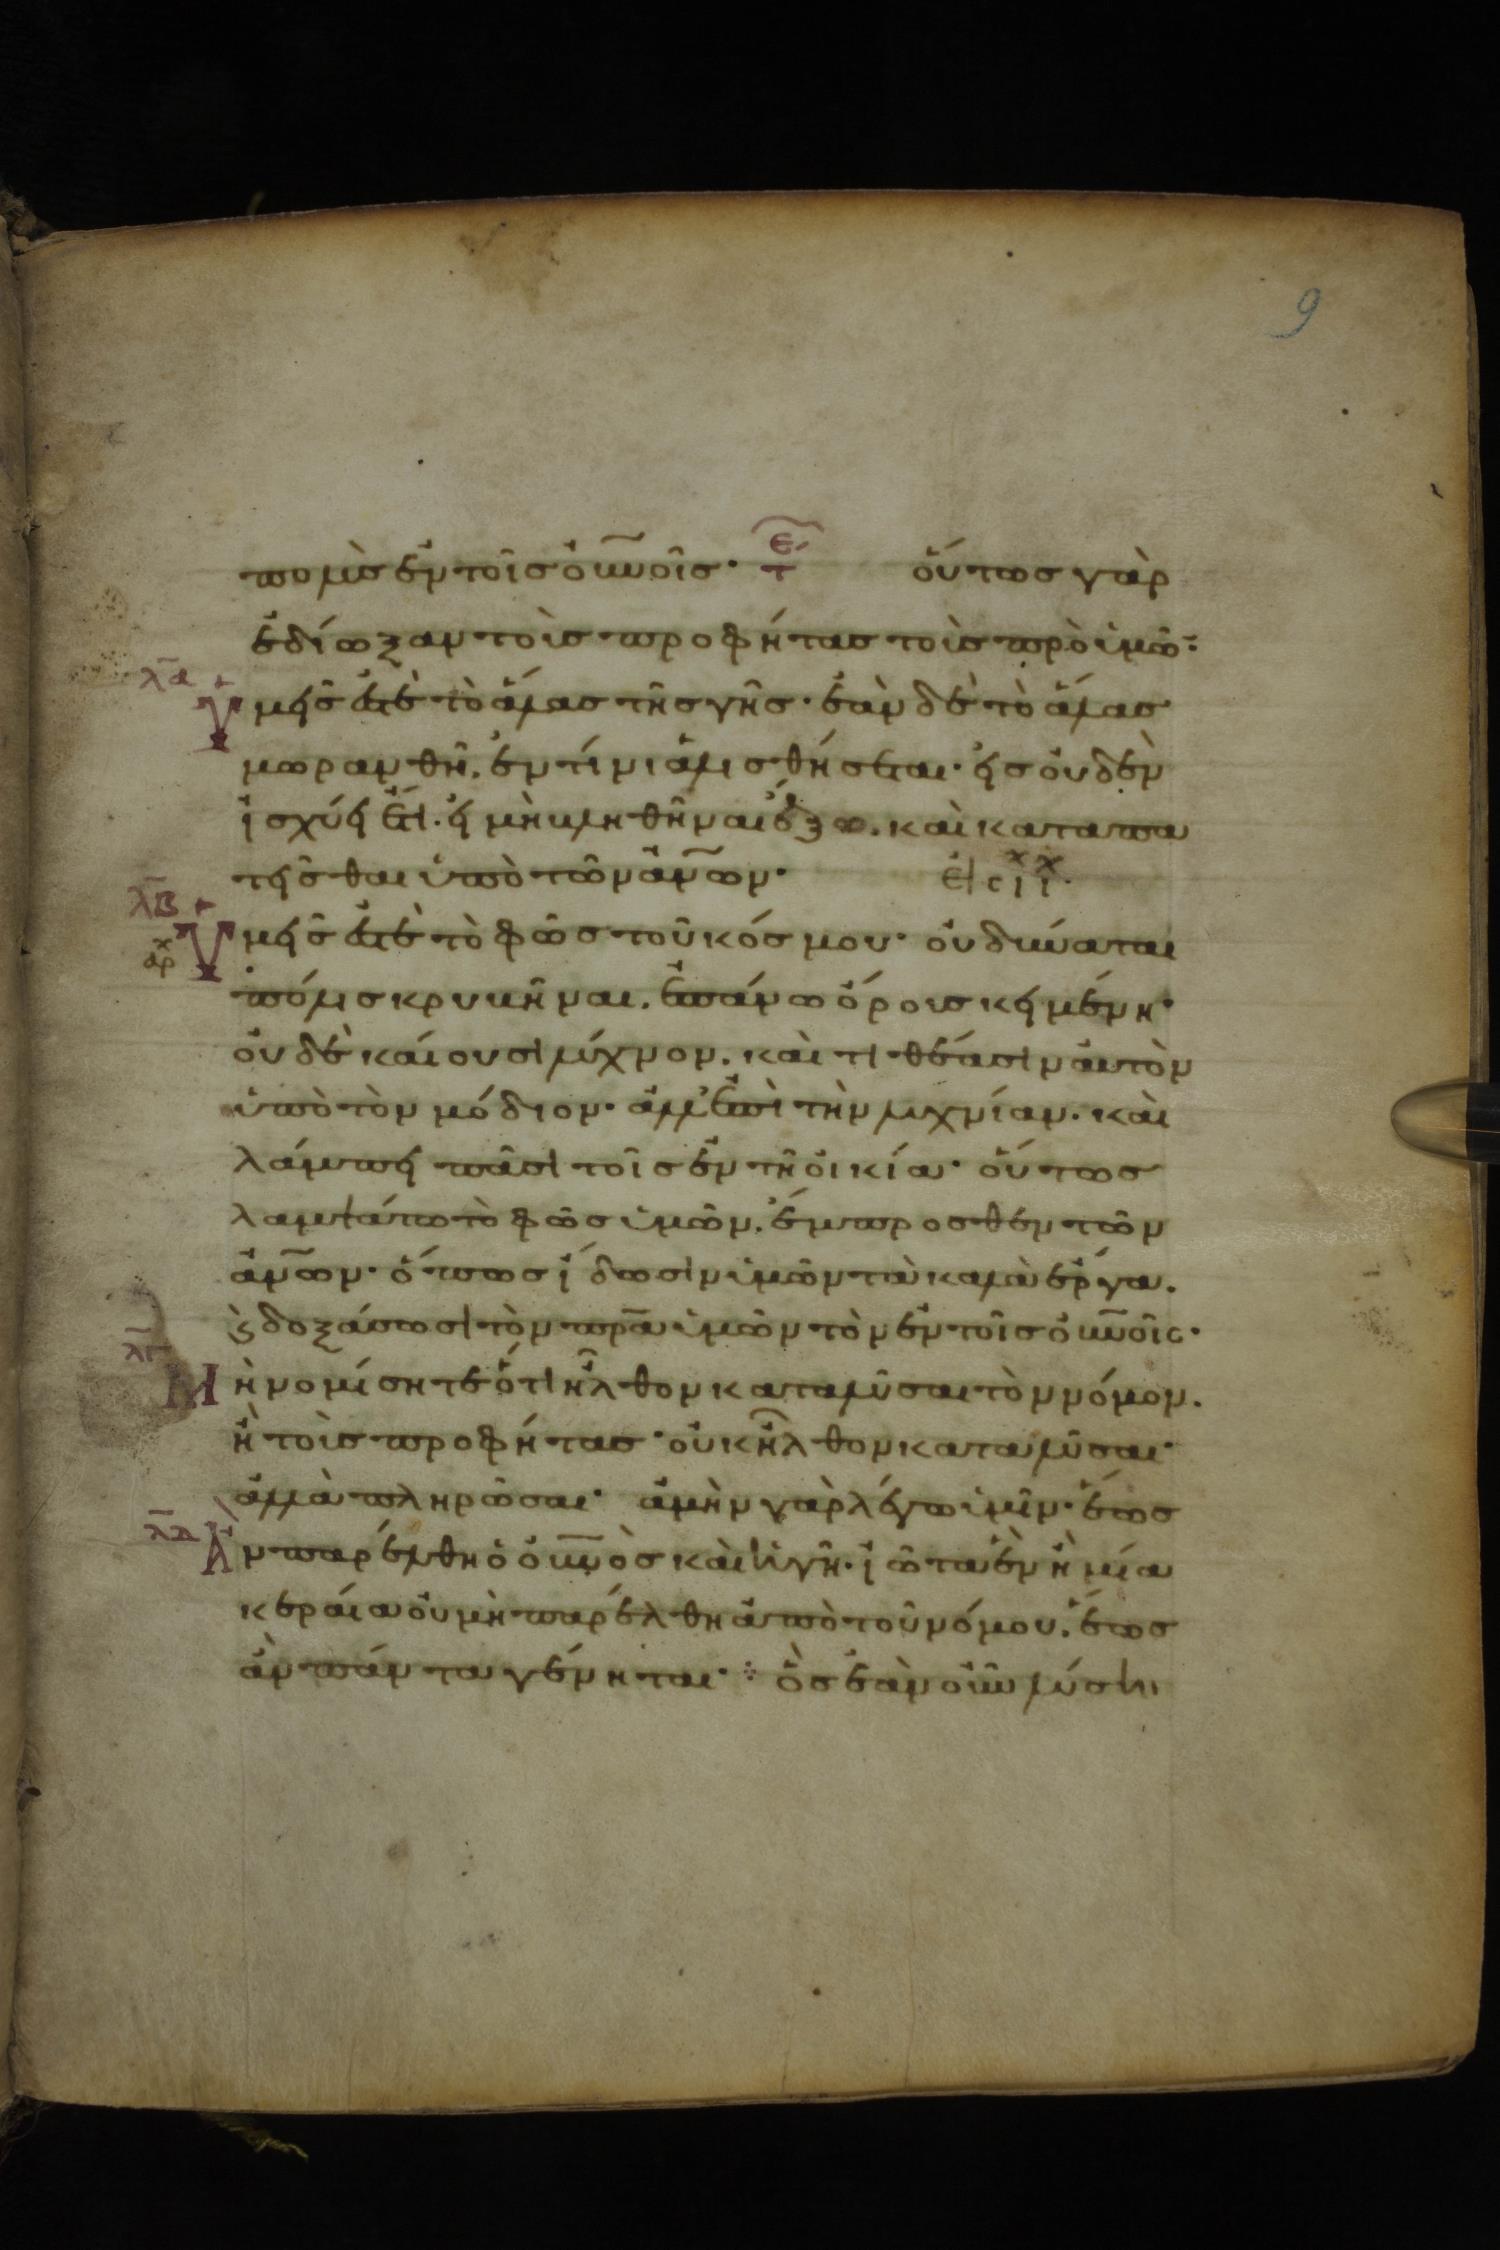 9
πολὺς ἐν τοῖς οὐνοῖς· τε οὕτως γὰρ
ἐδίωξαν τοὺς προφήτας τοὺς πρὸ ὑμῶ·
λα Ὑμεῖς ἐστὲ τὸ ἅλας τῆς γῆς· ἐὰν δὲ τὸ ἅλας
μωρανθῆ. ἐν τίνι ἁλισθήσεται· εἰς οὐδὲν
ἰσχύει ἔτι. εἰ μὴ βληθῆναι ἔξω. καὶ καταπα
τεῖσθαι ὑπὸ τῶν ἀνων·
λβ αρχ Ὑμεῖς ἐστὲ τὸ φῶς τοῦ κόσμου· οὐ δύναται
πόλις κρυβῆναι. ἐπάνω ὄρους κειμένη·
οὐδὲ καίουσι λύχνον. καὶ τιθέασιν αὐτὸν
ὑπὸ τὸν μόδιον· ἀλλ' ἐπὶ τὴν λυχνίαν. καὶ
λάμπει πᾶσι τοῖς ἐν τῆ οἰκία· οὕτως
λαμψάτω τὸ φῶς ὑμῶν. ἔμπροσθεν τῶν
ἀνων· ὅπως ἴδωσιν ὑμῶν τὰ καλὰ ἔργα.
ϗ δοξάσωσι τὸν πρα ὑμῶν τὸν ἐν τοῖς οὐνοῖς·
λγ Μὴ νομίσητε ὅτι ἦλθον καταλῦσαι τὸν νόμον.
ἢ τοὺς προφήτας· οὐκ ἦλθον καταλῦσαι·
ἀλλὰ πληρῶσαι· ἀμὴν γὰρ λέγω ὑμῖν· ἕως
λδ Ἂν παρέλθη ὁ οὐνὸς καὶ ἡ γῆ. ἰῶτα ἓν ἢ μία
κεραία οὐ μὴ παρέλθη ἀπὸ τοῦ νόμου. ἕως
ἂν πάντα γένηται· ὃς ἐὰν οὖν λύση